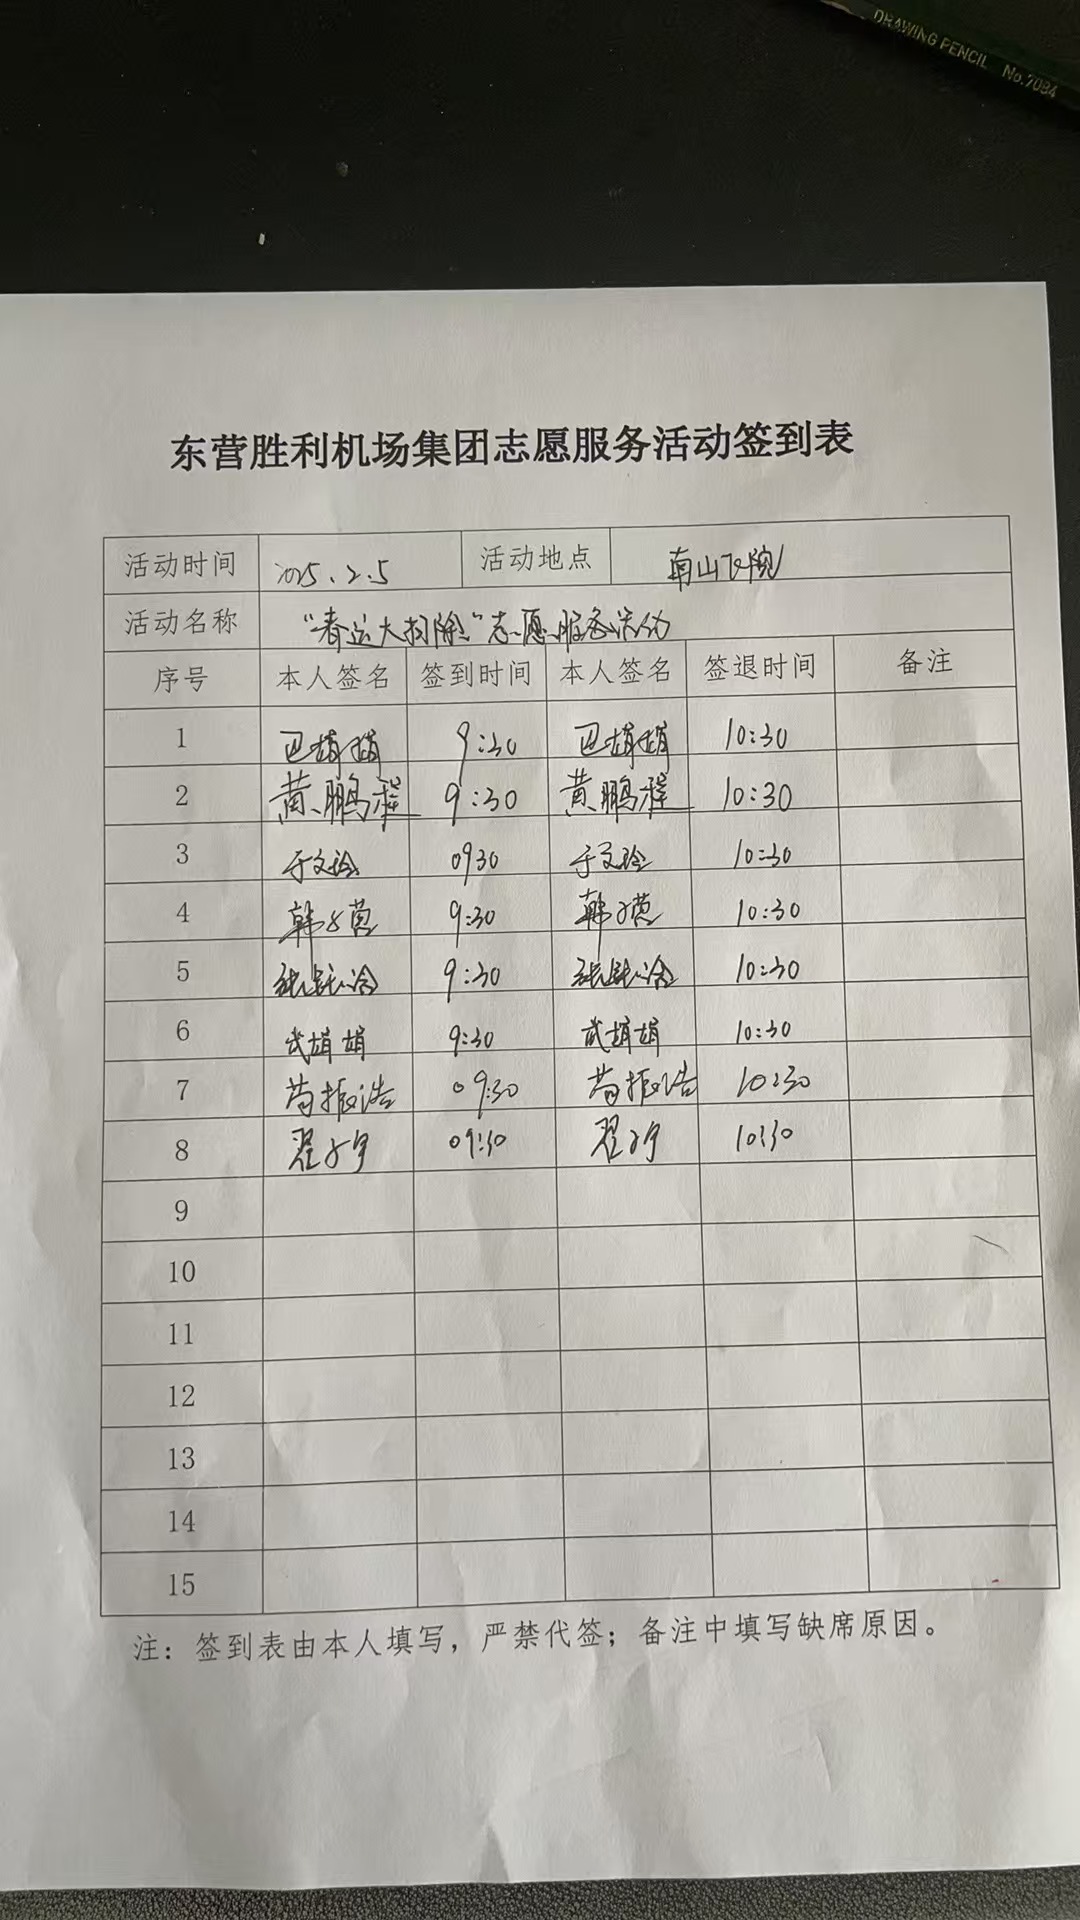 DRAWING PENCIL No.7084
东营胜利机场集团志愿服务活动签到表
活动时间 2025.2.5 活动地点 南山飞院
活动名称 "春运大扫除"志愿服务活动
序号 本人签名 签到时间 本人签名 签退时间 备注
1 巴娟娟 9:30 巴娟娟 10:30
2 黄鹏程 9:30 黄鹏程 10:30
3 于文玲 0930 于文玲 10:30
4 韩 9:30 韩 10:30
5 9:30 10:30
6 武娟娟 9:30 武娟娟 10:30
7 振浩 09:30 振浩 10:30
8 翟子宇 09:30 翟子宇 10:30
9
10
11
12
13
14
15
注：签到表由本人填写，严禁代签；备注中填写缺席原因。